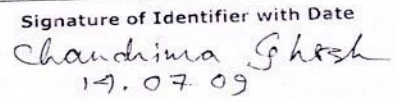 Signature of Identifier with Date
Chandrima Ghosh
14.07.09